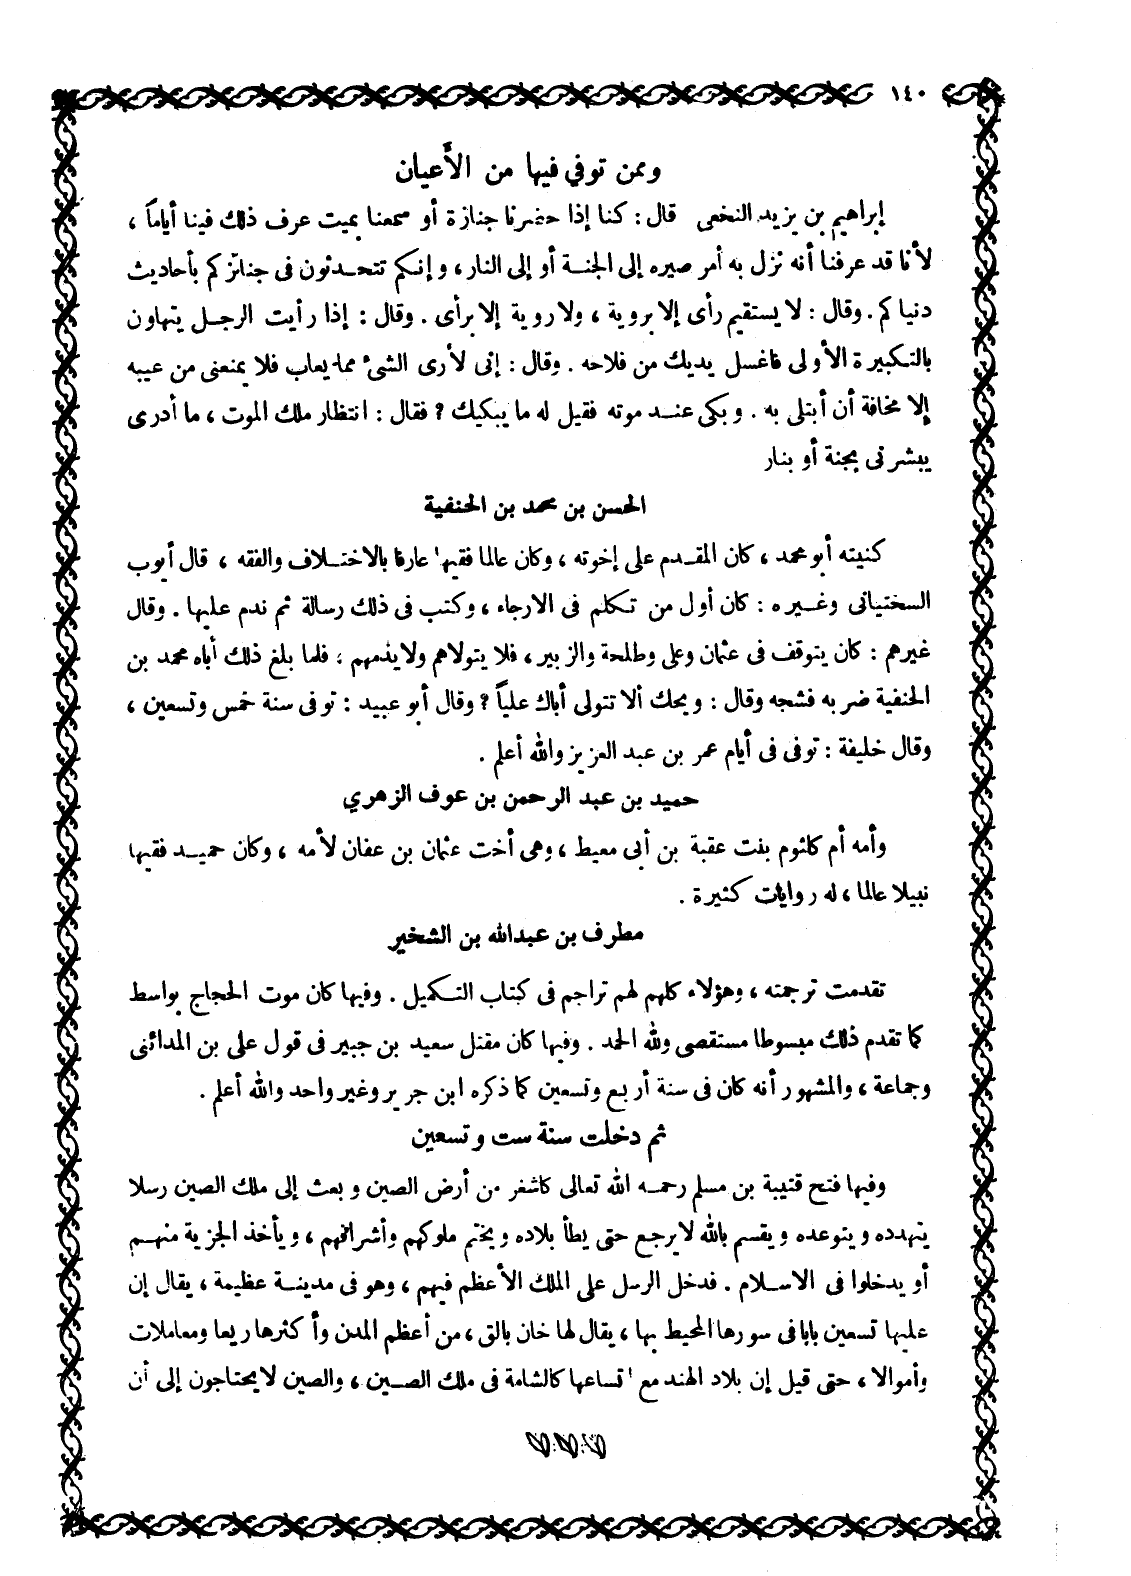 ١٤٠
وممن توفي فيها من الأعيان
إبراهيم بن يزيد النخعى قال : كنا إذا حضرنا جنازة أو سمعنا بميت عرف ذلك فينا أياماً ،
لأنا قد عرفنا أنه نزل به أمر صيره إلى الجنة أو إلى النار ، وإنكم تتحدثون فى جنائزكم بأحاديث
دنياكم . وقال : لا يستقيم رأى إلا بروية ، ولا روية إلا برأى . وقال : إذا رأيت الرجل يتهاون
بالتكبيرة الأولى فاغسل يديك من فلاحه . وقال : إنى لأرى الشئ مما يعاب فلا يمنعنى من عيبه
إلا مخافة أن أبتلى به . وبكى عند موته فقيل له ما يبكيك ؟ فقال : انتظار ملك الموت ، ما أدرى
يبشرنى بجنة أو بنار
الحسن بن محمد بن الحنفية
كنيته أبو محمد ، كان المقدم على إخوته ، وكان عالما فقيها عارفا بالاختلاف والفقه ، قال أيوب
السختيانى وغيره : كان أول من تكلم فى الارجاء ، وكتب فى ذلك رسالة ثم ندم عليها . وقال
غيرهم : كان يتوقف فى عثمان وعلى وطلحة والزبير ، فلا يتولاهم ولا يذمهم ، فلما بلغ ذلك أباه محمد بن
الحنفية ضربه فشجه وقال : ويحك ألا تتولى أباك علياً ؟ وقال أبو عبيد : توفى سنة خمس وتسعين ،
وقال خليفة : توفى فى أيام عمر بن عبد العزيز والله أعلم .
حميد بن عبد الرحمن بن عوف الزهري
وأمه أم كلثوم بنت عقبة بن أبى معيط ، وهى أخت عثمان بن عفان لأمه ، وكان حميد فقيها
نبيلا عالما ، له روايات كثيرة .
مطرف بن عبدالله بن الشخير
تقدمت ترجمته ، وهؤلاء كلهم لهم تراجم فى كتاب التكميل . وفيها كان موت الحجاج بواسط
كما تقدم ذلك مبسوطا مستقصى ولله الحمد . وفيها كان مقتل سعيد بن جبير فى قول على بن المدائنى
وجماعة ، والمشهور أنه كان فى سنة أربع وتسعين كما ذكره ابن جرير وغير واحد والله أعلم .
ثم دخلت سنة ست وتسعين
وفيها فتح قتيبة بن مسلم رحمه الله تعالى كاشغر من أرض الصين وبعث إلى ملك الصين رسلا
يتهدده ويتوعده ويقسم بالله لا يرجع حتى يطأ بلاده ويختم ملوكهم وأشرافهم ، ويأخذ الجزية منهم
أو يدخلوا فى الاسلام . فدخل الرسل على الملك الأعظم فيهم ، وهو فى مدينة عظيمة ، يقال إن
عليها تسعين بابا فى سورها المحيط بها ، يقال لها خان بالق ، من أعظم المدن وأكثرها ريعا ومعاملات
وأموالا ، حتى قيل إن بلاد الهند مع اتساعها كالشامة فى ملك الصين ، والصين لا يحتاجون إلى أن